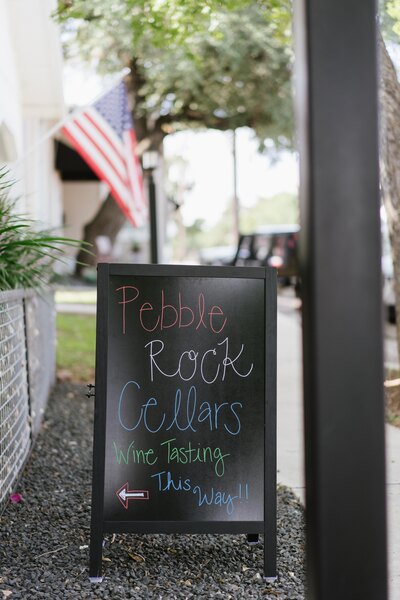 Pebble
Rock
Cellars
Wine Tasting
This Way!!